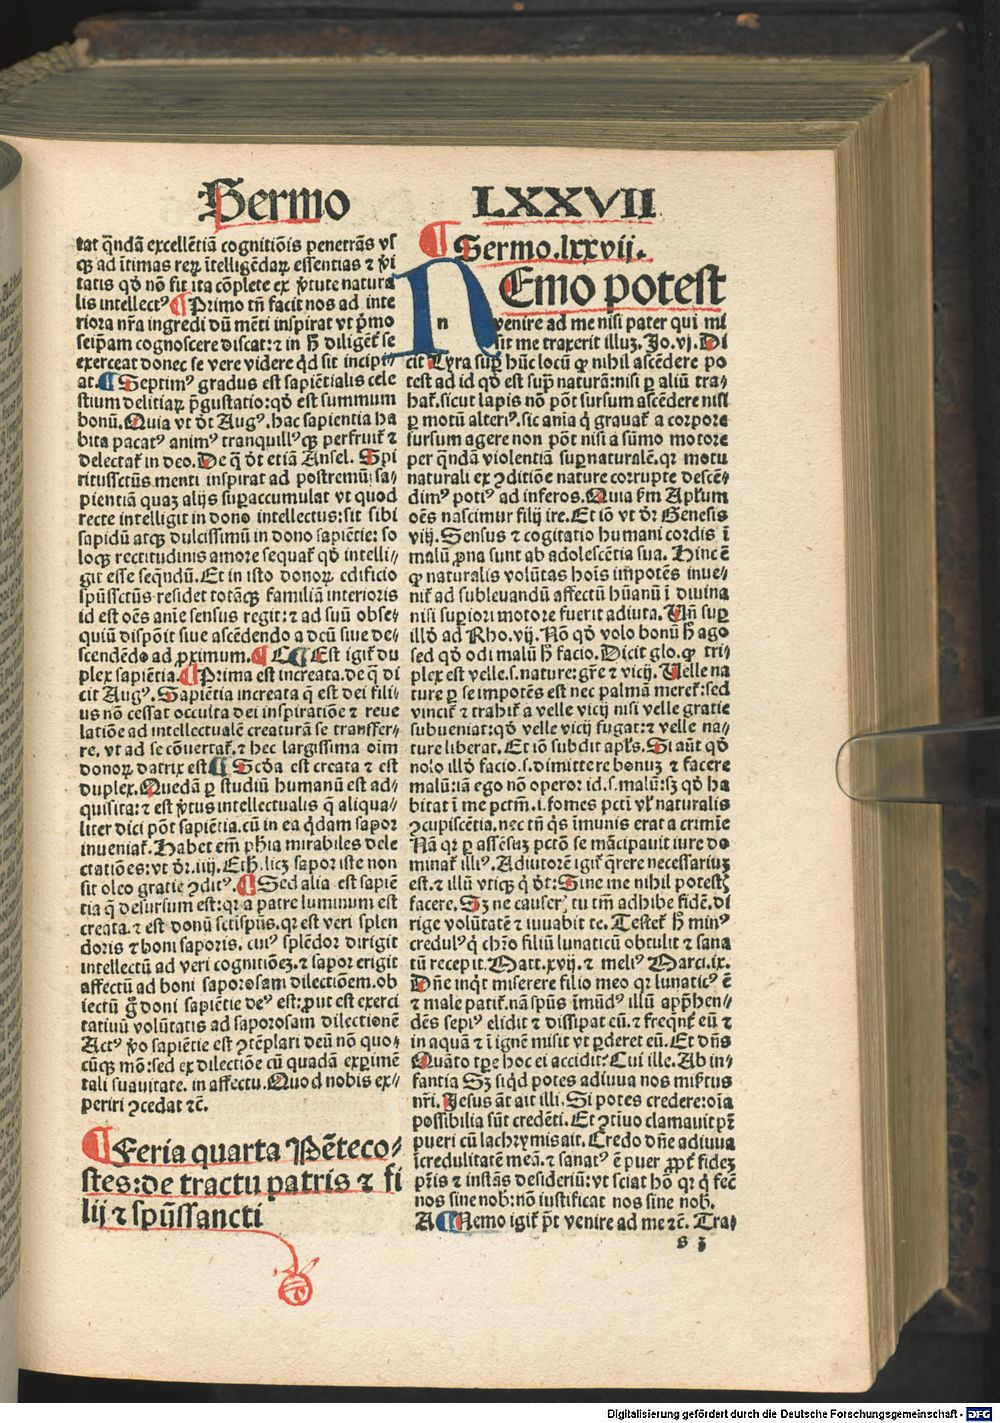 Sermo LXXVII
tat q̄ndā excellētiā cognitiōis penetrās vs
qꝫ ad ītimas reꝝ ītelligēdaꝝ essentias ⁊ p̄i
tatis qd̓ nō fit ita cōplete ex p̄tute natura
lis intellectꝰ ¶ Primo tn̄ facit nos ad inte
riora nr̄a ingredi dū mēti inspirat vt p̄mo
seip̄am cognoscere discat: ⁊ in hͦ diligēt᷑ se
exerceat donec se vere videre q̓d sit incipi⸗
at. ¶ Septimꝰ gradus est sapiētialis cele
stium delitiaꝝ p̄gustatio: qd̓ est summum
bonū. Quia vt dt̓ Augꝰ. hac sapientia ha
bita pacatꝰ animꝰ tranquillꝰqꝫ perfruit᷑ ⁊
delectat᷑ in deo. De q̄ dt̓ etiā Ansel. Spi
ritussctūs menti inspirat ad postremū sa⸗
pientiā quaꝫ alijs suꝑaccumulat vt quod
recte intelligit in dono intellectus: sit sibi
sapidū atqꝫ dulcissimū in dono sapiētie: so
loqꝫ rectitudinis amore sequat᷑ qd̓ intelli⸗
git esse seq̄ndū. Et in isto donoꝝ edificio
spūssctūs residet totāqꝫ familiā interioris
id est oēs aīe sensus regit: ⁊ ad suū obse⸗
quiū dispōit siue ascēdendo a dcū siue de⸗
scendēdo ad ꝓximum. ¶ C ¶ Est igit᷑ du
plex sapiētia. ¶ Prima est increata. de q̄ di
cit Augꝰ. Sapiētia increata q̄ est dei fili⸗
us nō cessat occulta dei inspiratiōe ⁊ reue
latiōe ad intellectualē creaturā se transfer⸗
re. vt ad se cōuertat᷑. ⁊ hec largissima oīm
donoꝝ datrix est ¶ Scd̓a est creata ⁊ est
duplex. Quedā ꝑ studiū humanū est ad⸗
quisita: ⁊ est p̄tus intellectualis q̄ aliqua⸗
liter dici pōt sapiētia. cū in ea q̓dam sapor
inueniat᷑. Habet em̄ ph̄ia mirabiles dele
ctatiōes: vt dr̓. iiij. Eth̄. licꝫ sapor iste non
sit oleo gratie ꝯditꝰ. ¶ Sed alia est sapiē
tia q̄ desursum est: qꝛ a patre luminum est
creata. ⁊ est donū sctispūs. qꝛ est veri splen
doris ⁊ boni saporis. cuiꝰ splēdor dirigit
intellectū ad veri cognitiōeꝫ. ⁊ sapor erigit
affectū ad boni saporosam dilectiōem. ob
iectū g̊ doni sapiētie deꝰ est: ꝓut est exerci
tatiuū volūtatis ad saporosam dilectionē
Actꝰ p̊o sapiētie est ꝯtēplari deū nō quo⸗
cūqꝫ mō: sed ex dilectiōe cū quadā exꝑimē
tali suauitate. in affectu. Quod nobis ex⸗
periri ꝯcedat ⁊c̄.
¶ Feria quarta Pēteco⸗
stes: de tractu patris ⁊ fi
lij ⁊ spūssancti
¶ Sermo. lxxvij.
NEmo potest
n venire ad me nisi pater qui mi
sit me traxerit illuꝫ. Jo. vj. Di
cit Lyra suꝑ hūc locū ꝙ nihil ascēdere po
test ad id qd̓ est supͣ naturā: nisi ꝑ aliū tra⸗
hat᷑. sicut lapis nō pōt sursum ascēdere nisi
ꝑ motū alteriꝰ. sic aīa q̄ grauat᷑ a corpore
sursum agere non pōt nisi a sūmo motore
per q̄ndā violentiā suꝑnaturalē. qꝛ motu
naturali ex ꝯditiōe nature corrupte descē⸗
dimꝰ potiꝰ ad inferos. Quia ẜm Apl̓um
oēs nascimur filij ire. Et iō vt dr̓ Genesis
viij. Sensus ⁊ cogitatio humani cordis ī
malū ꝓna sunt ab adolescētia sua. Hinc ē
ꝙ naturalis volūtas hoīs imp̄otēs inue⸗
nit᷑ ad subleuandū affectū hūanū ī diuina
nisi suꝑiori motore fuerit adiuta. Vn̄ suꝑ
illd̓ ad Rho. vij. Nō qd̓ volo bonū hͦ ago
sed qd̓ odi malū hͦ facio. Dicit glo. ꝙ tri⸗
plex est velle. s. nature: gr̄e ⁊ vicij. Velle na
ture ꝑ se impotēs est nec palmā meret᷑: sed
vincit᷑ ⁊ trahit᷑ a velle vicij nisi velle gratie
subueniat: qd̓ velle vicij fugat: ⁊ velle na⸗
ture liberat. Et iō subdit apl̓s. Si aūt qd̓
nolo illd̓ facio. s. dimittere bonuꝫ ⁊ facere
malū: iā ego nō operor id. s. malū: sꝫ qd̓ ha
bitat ī me pctm̄. i. fomes pctī vl̓ naturalis
ꝯcupiscētia. nec tn̄ q̄s īmunis erat a crimīe
Nā qꝛ ꝑ assēsuꝫ pctō se mācipauit iure do
minat᷑ illiꝰ. Adiutorē igit᷑ q̄rere necessariuꝫ
est. ⁊ illū vtiqꝫ q̓ dt̓: Sine me nihil potestꝭ
facere. Sꝫ ne causerꝭ tu tm̄ adhibe fidē. di
rige volūtatē ⁊ iuuabit te. Testet᷑ hͦ minꝰ
credulꝰ q̓ ch̄ro filiū lunaticū obtulit ⁊ sana
tū recepit. Matt. xvij. ⁊ meliꝰ Marci. ix.
Dn̄e inq̓t miserere filio meo qꝛ lunaticꝰ ē
⁊ male patit᷑. nā spūs īmūdꝰ illū app̄hen⸗
dēs sepiꝰ elidit ⁊ dissipat eū. ⁊ freq̄nt᷑ eū ⁊
in aquā ⁊ ī ignē misit vt ꝑderet eū. Et dn̄s
Quāto tꝑe hoc ei accidit? Cui ille. Ab in⸗
fantia Sꝫ siq̓d potes adiuua nos mis̓tus
nr̄i. Jesus āt ait illi. Si potes credere: oīa
possibilia sūt credēti. Et ꝯtīuo clamauit pr̄
pueri cū lachrymis ait. Credo dn̄e adiuua
īcredulitatē meā. ⁊ sanatꝰ ē puer ꝓpt᷑ fideꝫ
pr̄is ⁊ instās desideriū: vt sciat hō qꝛ q̓ fec̄
nos sine nob̄: nō iustificat nos sine nob̄.
A ¶ Nemo igit᷑ pt̄ venire ad me ⁊c̄. Tra⸗
s 3
Digitalisierung gefördert durch die Deutsche Forschungsgemeinschaft - DFG